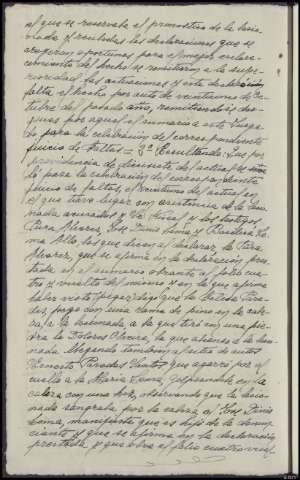 al que se reservaba el pronostico de la lesio-
nada y recibidas las declaraciones que se
creyeron oportunas para el mejor esclare-
cimiento del hecho se remitieron a la supe-
rioridad las actuaciones y esta declaró
falta el hecho por auto de veintiuno de Oc-
tubre del pasado año, remitiendose des-
pues por aquel el sumario a este Juzga-
do para la celebración del correspondiente
juicio de faltas = 3º Resultando: Que por
providencia de diecisiete del actual se seña
ló para la celebración del correspondiente
juicio de faltas, el veintiuno del actual en
el que tuvo lugar con asistencia de la
nada acusados y Sr. Fiscal y los testigos
Pura Alvarez, José Dinis Lema y
los que dicen al declarar, la Pura
Alvarez, que se afirma en la declaración pres-
tada en el sumario obrante al folio cua-
tro y vuelto del mismo y en la que afirma
haber visto
des, pego con una rama de pino en la cabe-
za, a la lesionada, a la que tiró con una pie-
dra la Dolores, la que
nada. Llegando tambien al
Ernesto Paredes que agarró por el
cuello a la Maria Lema, golpeandole en la
cabeza con una, observando que la lesio-
nada sangraba por la cabeza. José Dinis
Lema, manifiesta que es hijo de la denun-
ciante y que se afirma en la declaración
prestada y que obra al folio cuatro vuel-